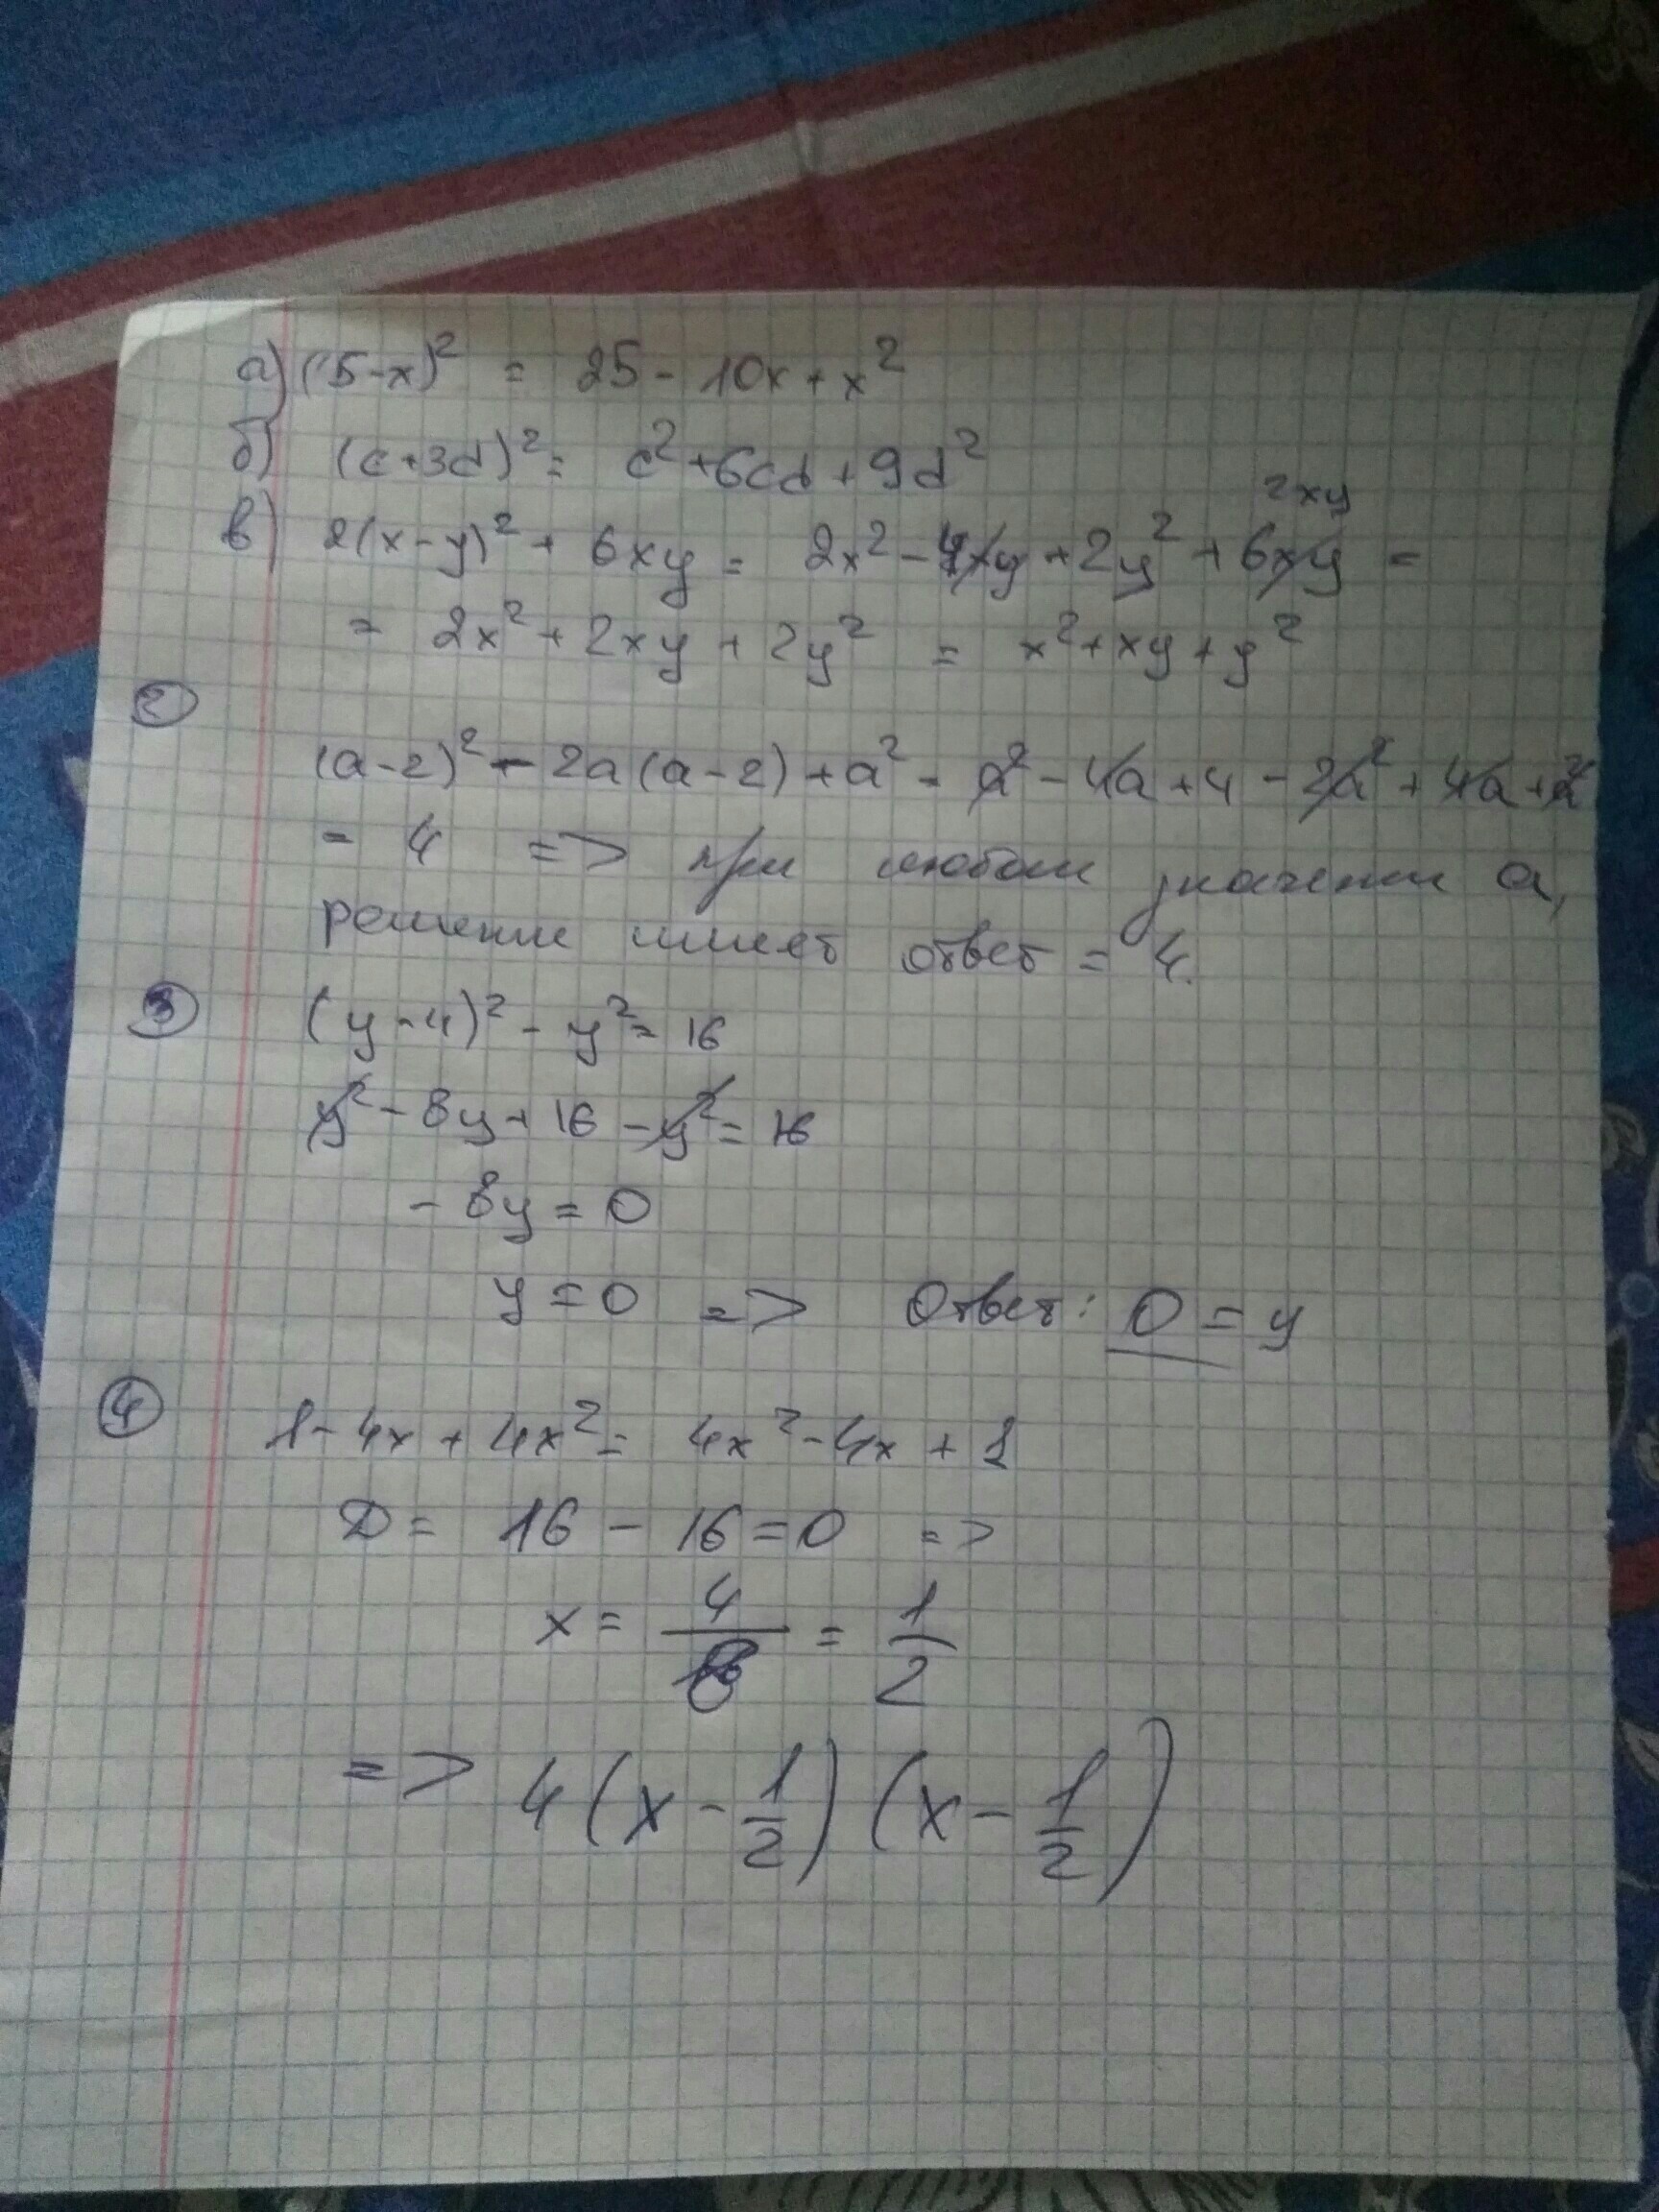 а) (5-x)² = 25 - 10x + x²
б) (c+3d)² = c² + 6cd + 9d²
2xy
в) 2(x-y)² + 6xy = 2x² - 4xy + 2y² + 6xy =
= 2x² + 2xy + 2y² = x² + xy + y²
②
(a-2)² - 2a(a-2) + a² = a² - 4a + 4 - 2a² + 4a + a²
= 4 => при любом значении a,
решение имеет ответ = 4.
③ (y-4)² - y² = 16
y² - 8y + 16 - y² = 16
- 8y = 0
y = 0 => Ответ: 0 = y
④ 1 - 4x + 4x² = 4x² - 4x + 1
D = 16 - 16 = 0 =>
x = 4/8 = 1/2
=> 4(x - 1/2)(x - 1/2)